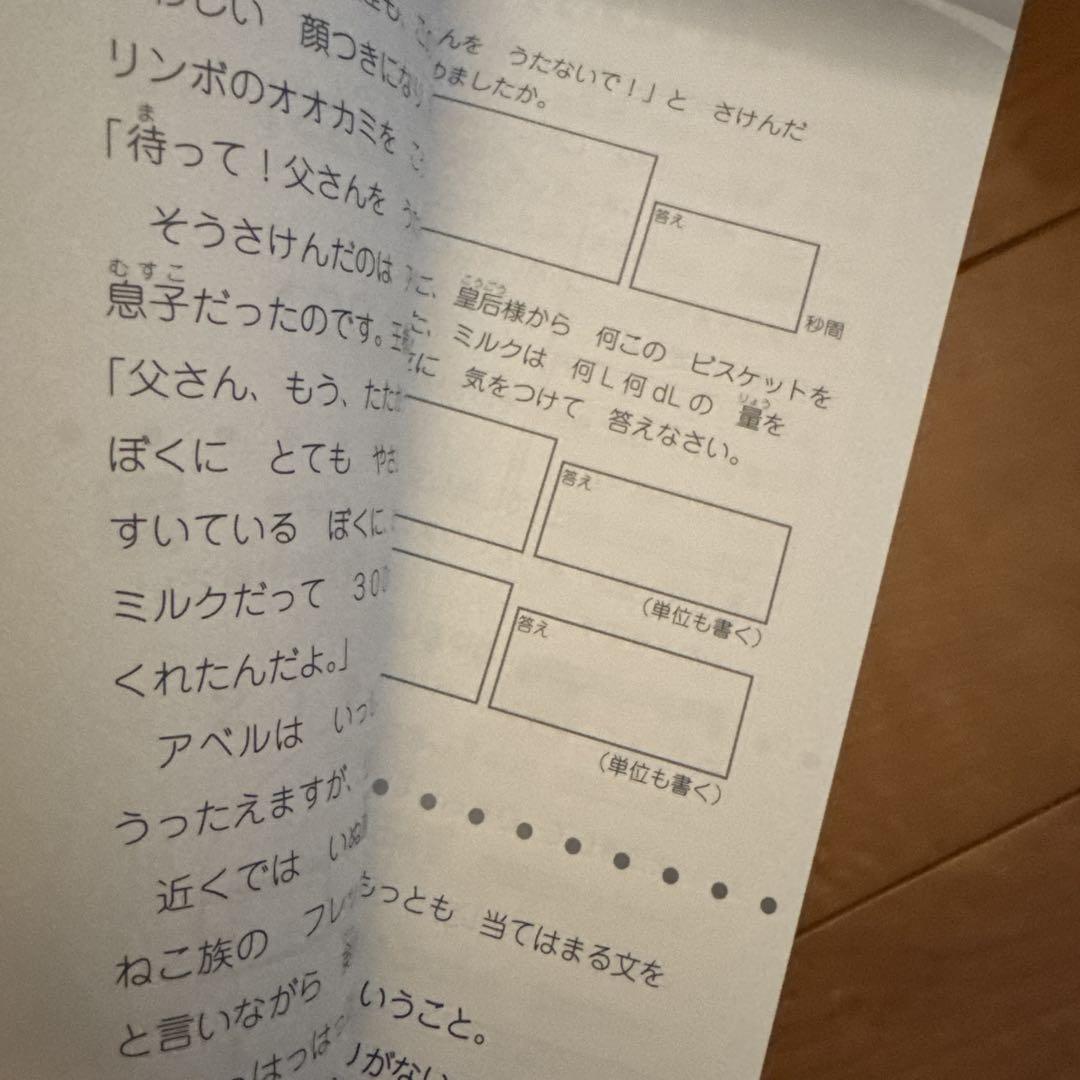 顔つきになり
リンボのオオカミを
「待って！父さんを
そうさけんだのは
息子だったのです。
「父さん、もう、たたか
ぼくに とても やさ
すいている ぼくに、
ミルクだって 300
くれたんだよ。」
アベルは いっ
うったえますが、
近くでは いぬ
ねこ族の フレ
と言いながら
んを うたないで！」と さけんだ
めましたか。
答え
秒間
皇后様から 何この ビスケットを
ミルクは 何L何dLの 量を
に 気をつけて 答えなさい。
答え
（単位も書く）
答え
（単位も書く）
もっとも 当てはまる文を
いうこと。
がない